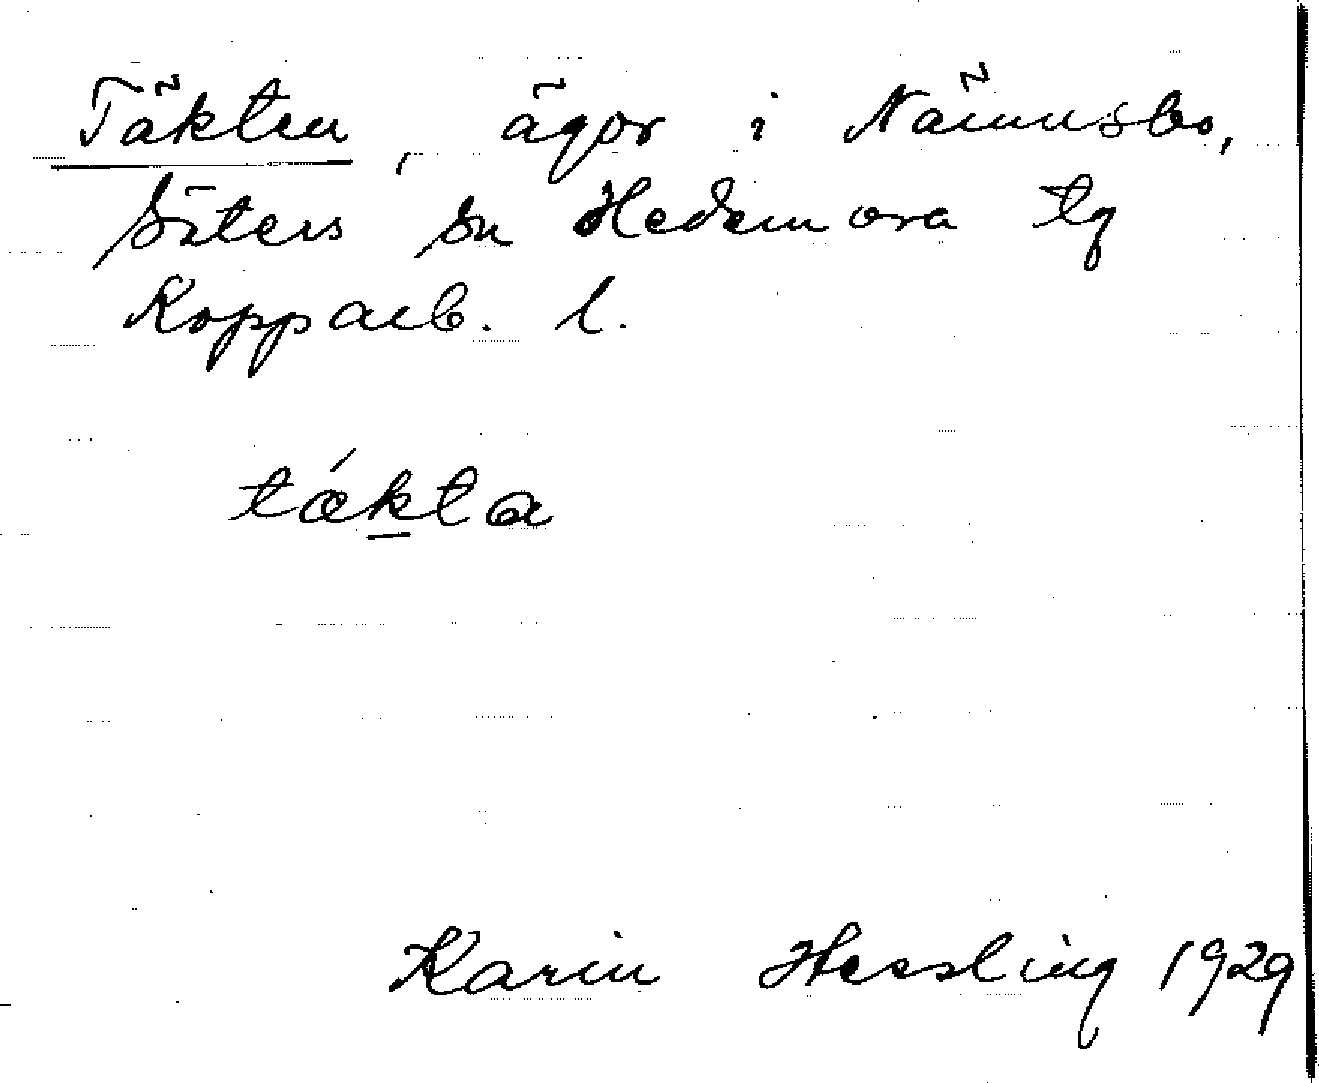 Täkten, ägor i Nämnsbo,
Säters sn Hedemora tg
Kopparb. l.
tǽkta
Karin Hessling 1929